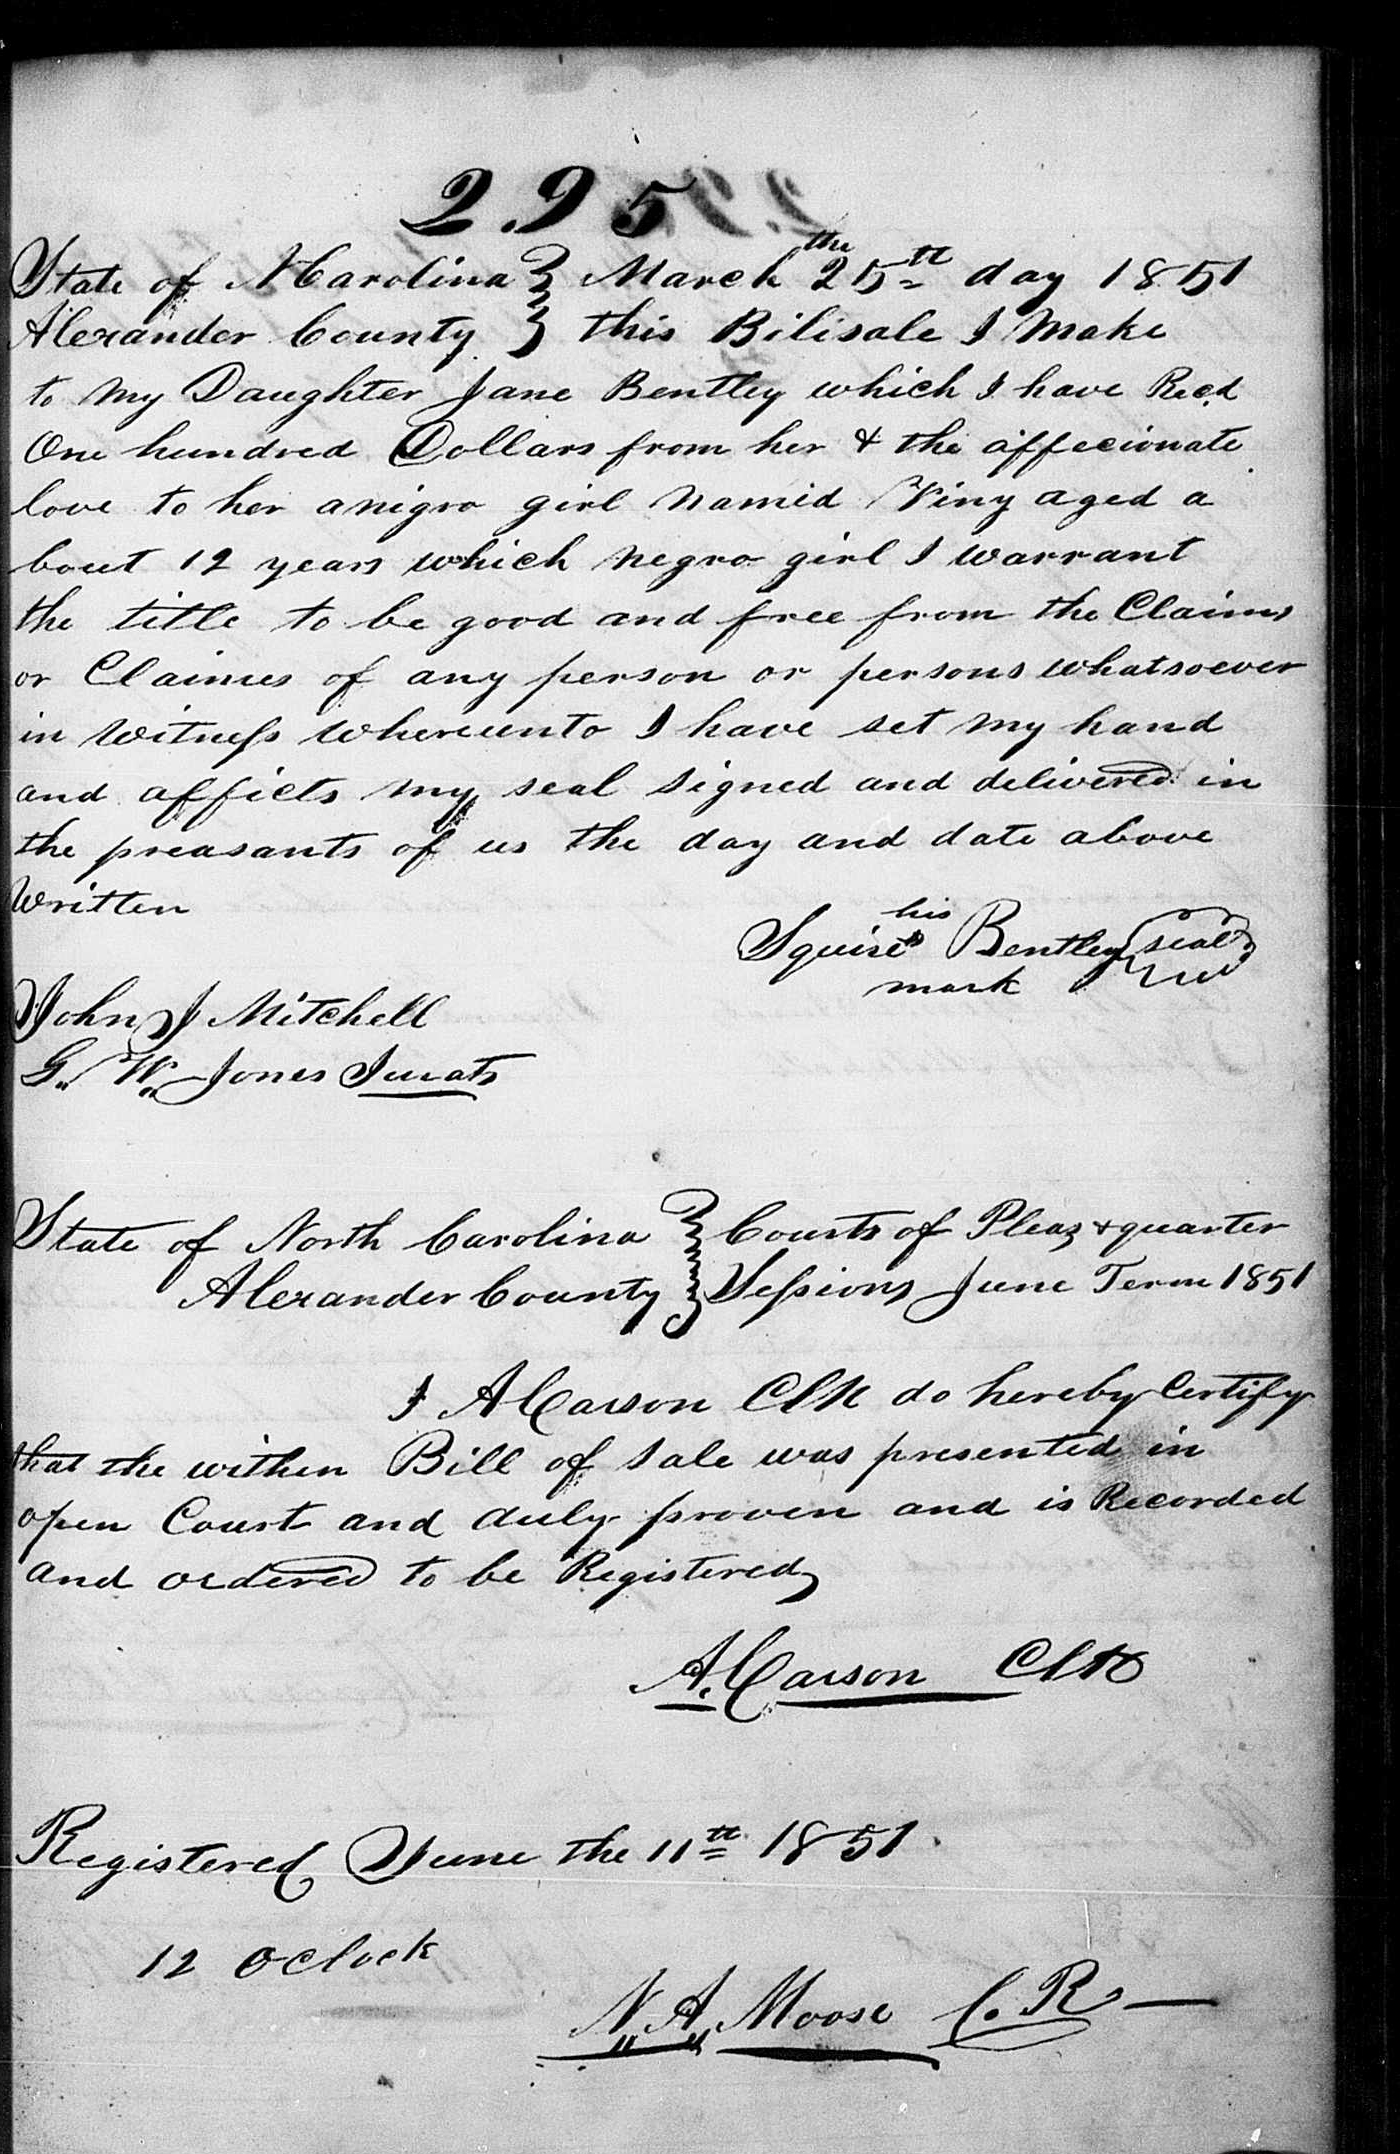 2.95
State of N Carolina } March the 25th day 1851
Alexander County } this Bilisale I make
to my Daughter Jane Bentley which I have Recd
One hundred Dollars from her & the affecionate
love to her a nigro girl namid Viny aged a
bout 12 years which negro girl I warrant
the title to be good and free from the Claims
or Claimes of any person or persons whatsoever
in Witness Whereunto I have set my hand
and afficts my seal signed and delivered in
the preasants of us the day and date above
Written
his
Squire Bentley seal
mark
John J Mitchell
G. W. Jones Jurats
State of North Carolina } Courts of Pleas & quarter
Alexander County } Sessions June Term 1851
I A Carson Clk do hereby Certify
that the within Bill of sale was presented in
open Court and duly proven and is Recorded
and ordered to be Registered
A. Carson Clk
Registered June the 11th 1851.
12 oclock
N. A. Moose C. R